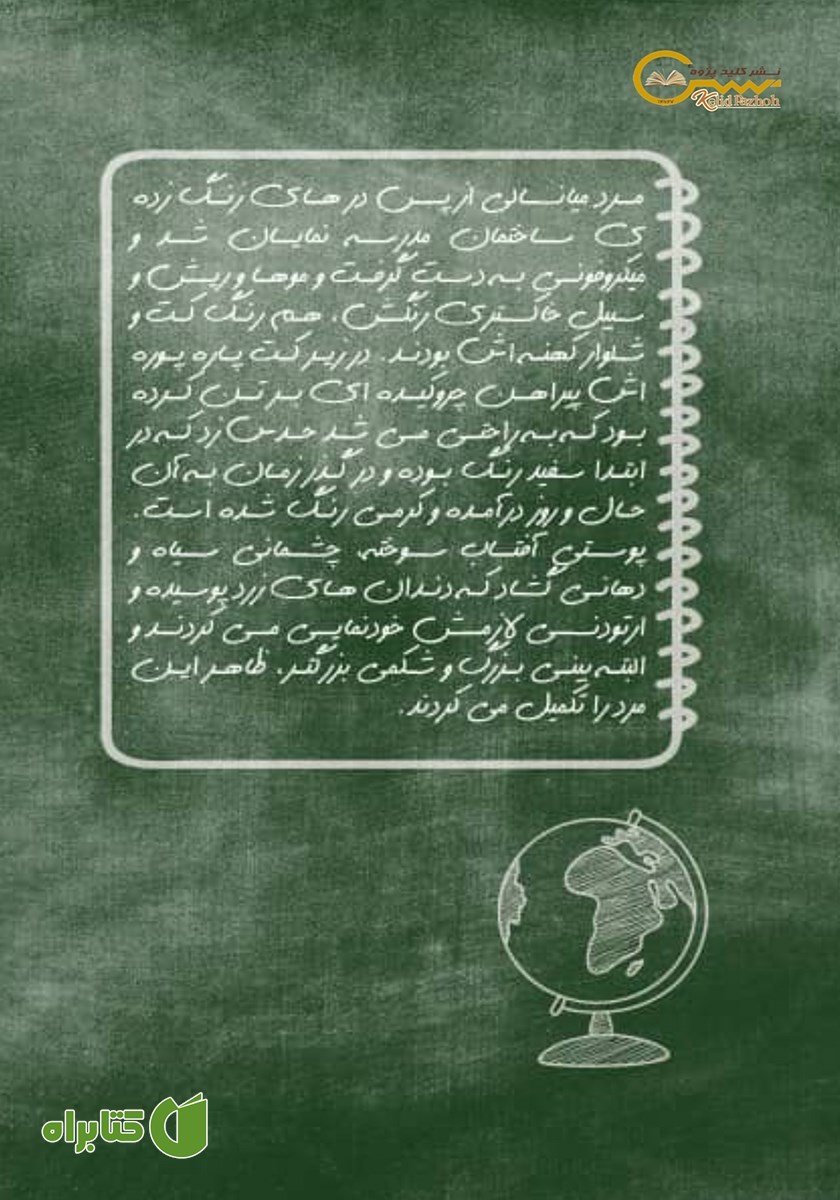 نشر کلید پژوه
Kelid Pazhoh
مرد میانسالی از پس در های زنگ زده
ی ساختمان مدرسه نمایان شد و
میکروفونی به دست گرفت و موها و ریش و
سبیل خاکستری رنگش، هم رنگ کت و
شلوار کهنه اش بودند. در زیر کت پاره پوره
اش پیراهن چروکیده ای بر تن کرده
بود که به راحتی می شد حدس زد که در
ابتدا سفید رنگ بوده و در گذر زمان به آن
حال و روز درآمده و کرمی رنگ شده است.
پوستی آفتاب سوخته، چشمانی سیاه و
دهانی گشاد که دندان های زرد پوسیده و
ارتودنسی لازمش خودنمایی می کردند و
البته بینی بزرگ و شکمی بزرگتر، ظاهر این
مرد را تکمیل می کردند.
کتابراه